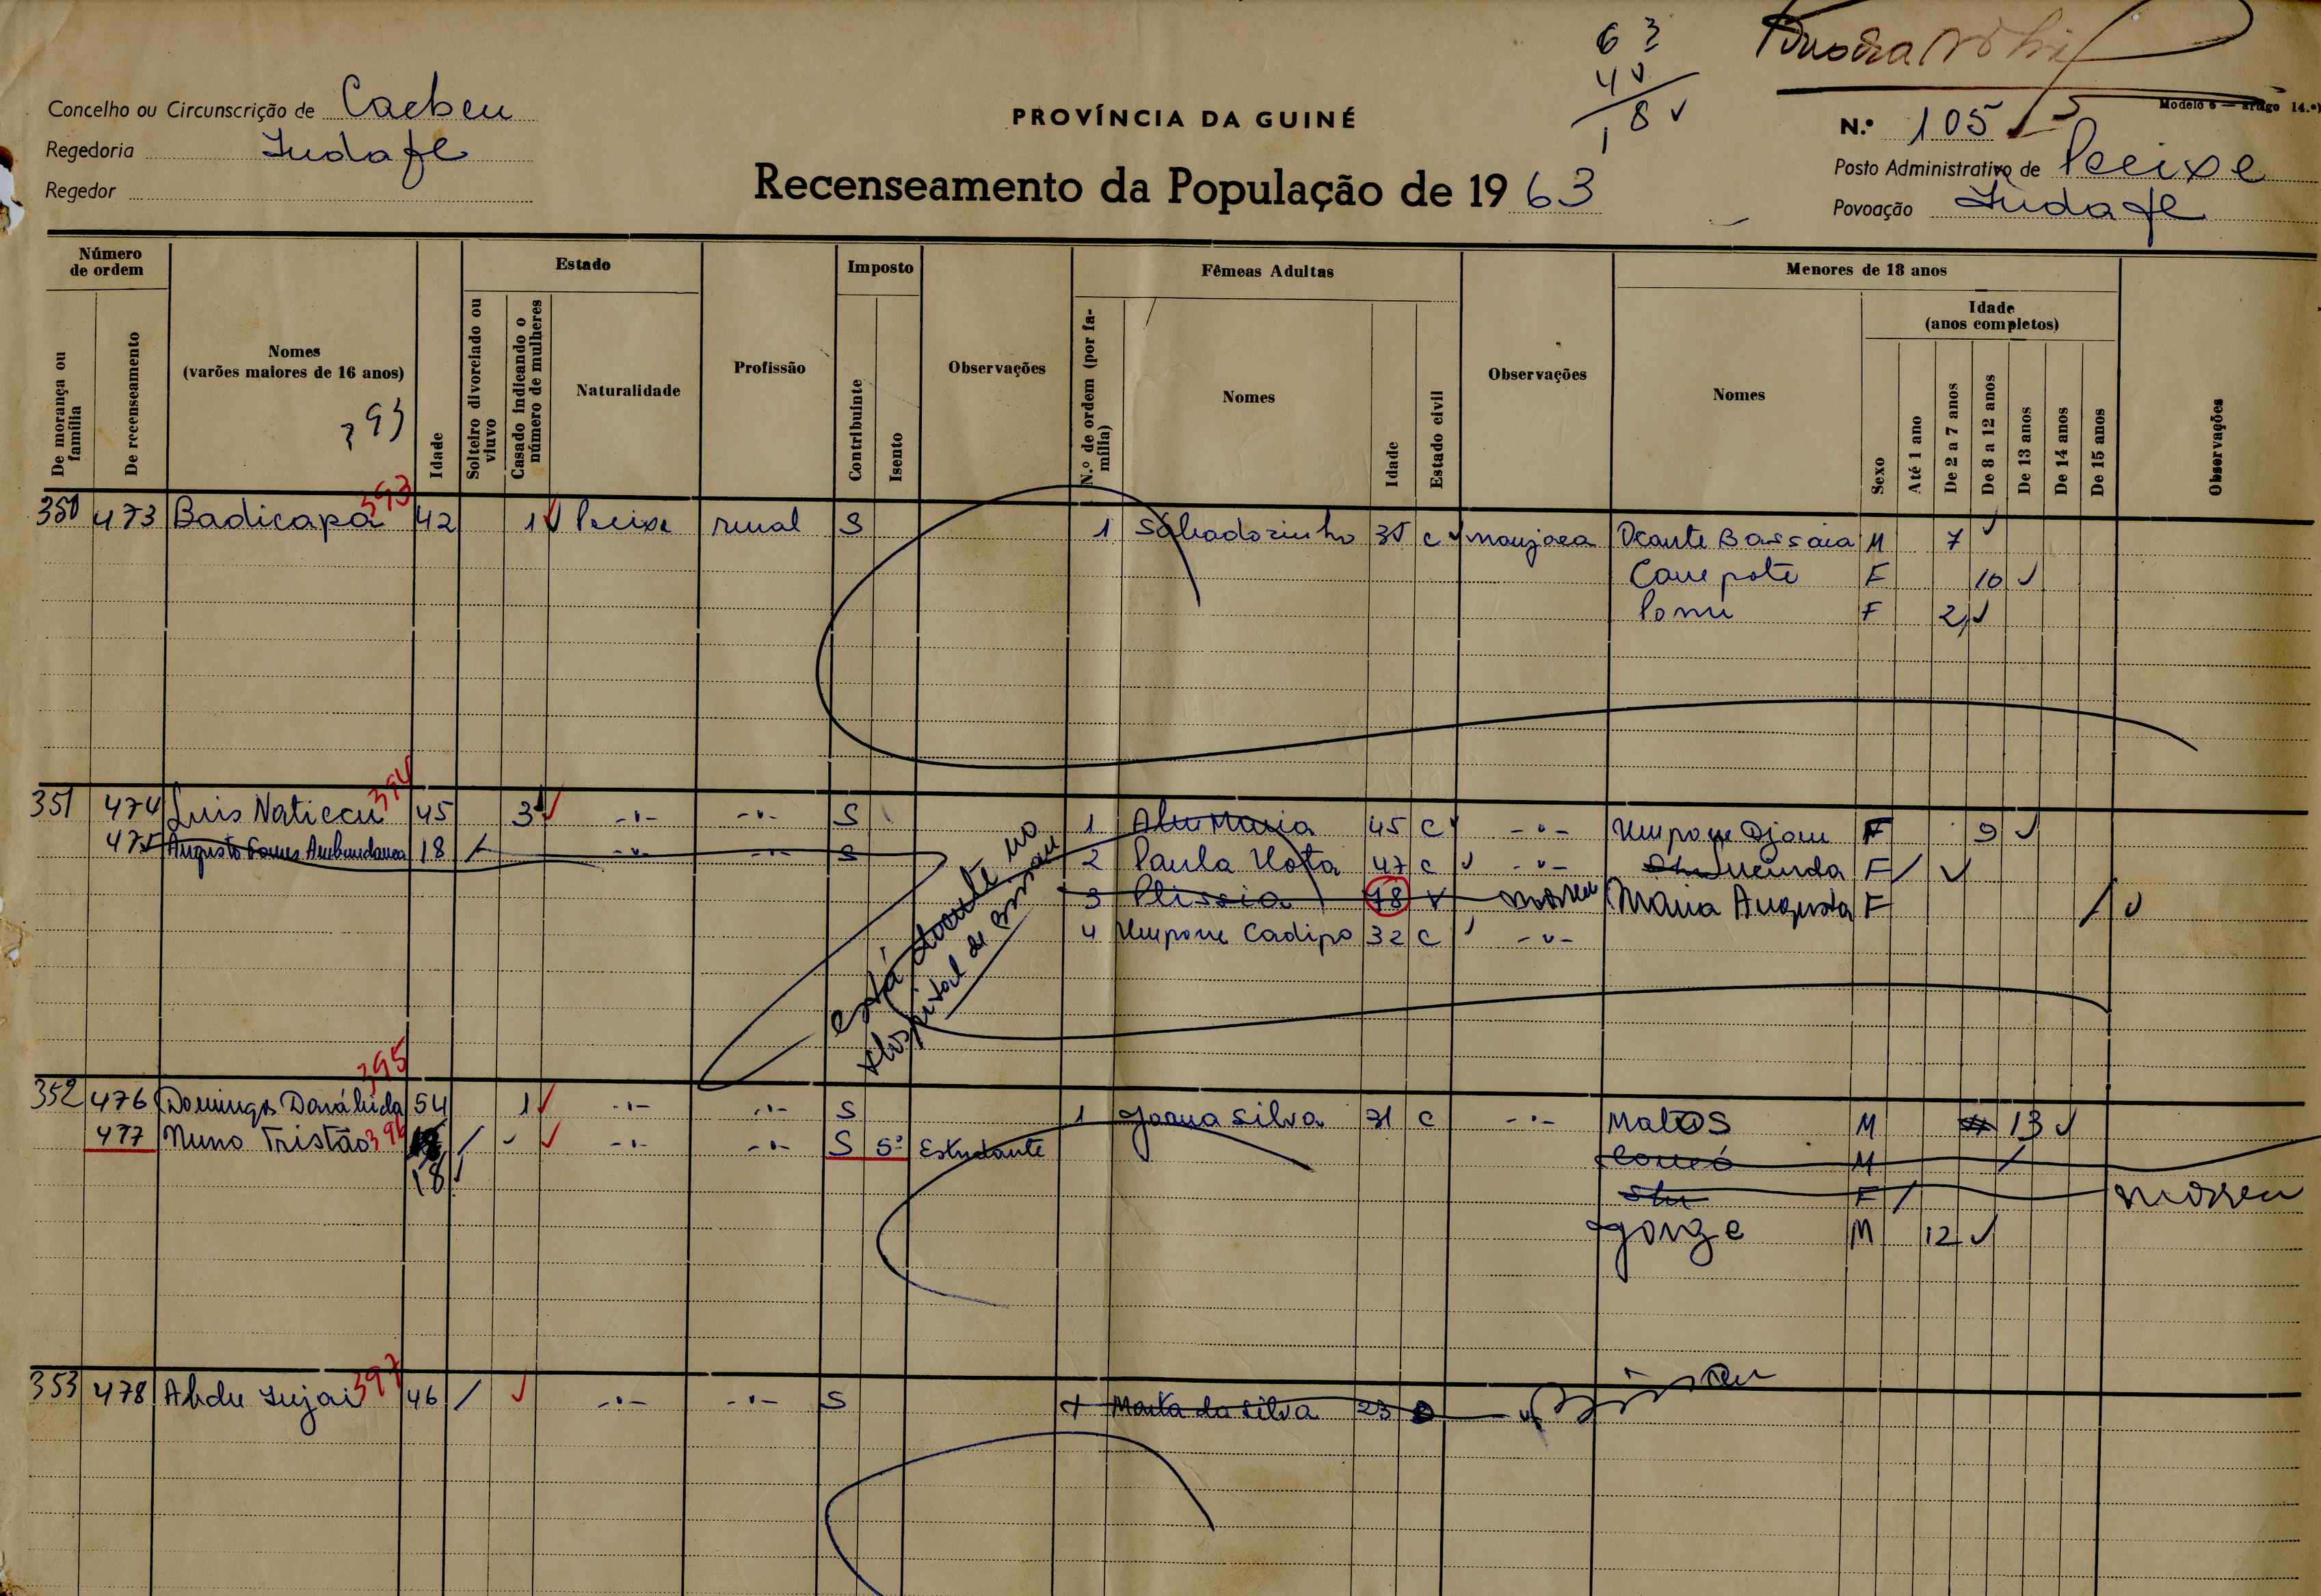 6 3
4
8
Modelo 6 — artigo 14.º)
Concelho ou Circunscrição de Caebeu
PROVÍNCIA DA GUINÉ
N.º 105
Regedoria Indafe
Posto Administrativo de Pecixe
Regedor
Recenseamento da População de 19 63
Povoação Indafe
Número de ordem
Estado
Imposto
Fêmeas Adultas
Menores de 18 anos
De morança ou família
De recenseamento
Nomes (varões maiores de 16 anos)
393
Idade
Solteiro divorciado ou viuvo
Casado indicando o número de mulheres
Naturalidade
Profissão
Contribuinte
Isento
Observações
N.º de ordem (por família)
Nomes
Idade
Estado civil
Observações
Nomes
Sexo
Idade (anos completos)
Até 1 ano
De 2 a 7 anos
De 8 a 12 anos
De 13 anos
De 14 anos
De 15 anos
Observações
393
350 473 Badicapa 42 1 Pecixe rural S 1 Sábadozinho 35 C manjaca Dcante Bassaia M 7
Campote F 10
Pomi F 2
394
351 474 Luis Naticcu 45 3 -"- -"- S 1 Alu Maria 45 C -"- Umpone Djom F 9
475 Augusto Gomes Ambundança 18 -"- -"- S 2 Paula Nota 47 C -"- Lucinda F
3 Plissia 78 V morreu Maria Augusta F
4 Umpone Cadipo 32 C -"-
está doente no
Hospital de Bissau
395
352 476 Domingos Danáhida 54 1 -"- -"- S 1 Joana Silva 31 C -"- Matos M 13
477 Nuno Tristão 396 -"- -"- S 5º Estudante M
18 F morreu
Jorge M 12
397
353 478 Abdu Injai 46 -"- -"- S 1 Marta da Silva 23 Bissau